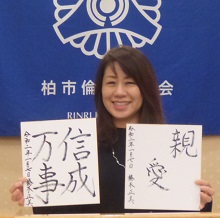 柏市倫
会
RINRI
信成
万事
令和二年一月七日
親愛
令和二年一月七日